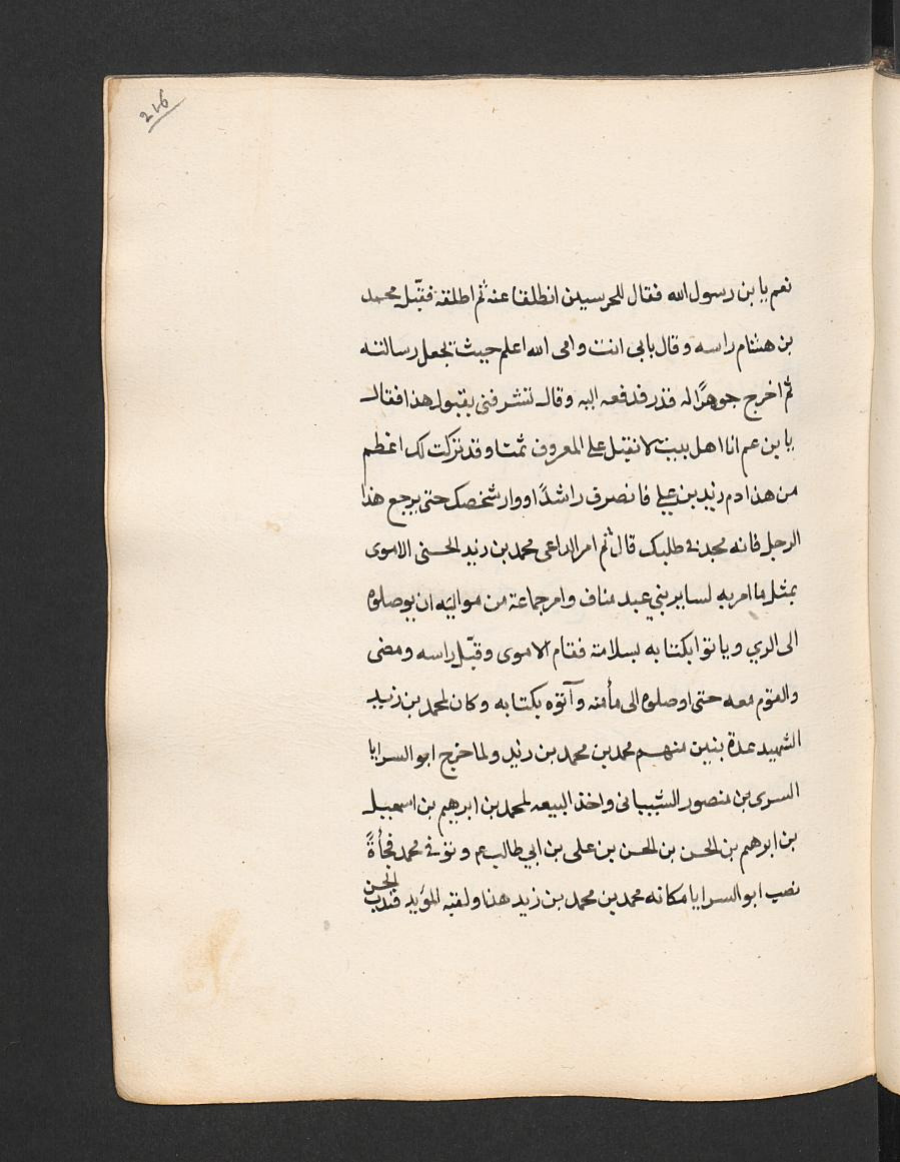 216
نعم يا بن رسول الله فقال للحرسيين انطلقا عنه ثم اطلقه فقبّل محمد
بن هشام راسه وقال بابي انت وامى الله اعلم حيث يجعل رسالته
ثم اخرج جوهرًا له قدر فدفعه اليه وقال تشرفنى بقبول هذا فقال
يا بن عم انا اهل بيت لا نقبل على المعروف ثمنا وقد تركت لك اعظم
من هذا دم زيد بن على فانصرف راشدًا ووار شخصك حتى يرجع هذا
الرجل فانه مجد فى طلبك قال ثم امر الداعى محمد بن زيد الحسنى الاموى
بمثل ما امر به لساير بني عبد مناف وامر جماعة من مواليه ان يوصلوه
الى الري وياتوا بكتابه بسلامته فقام الاموى وقبّل راسه ومضى
والقوم معه حتى اوصلوه الى مأمنه وآتوه بكتابه وكان لمحمد بن زيد
الشهيد عدة بنين منهم محمد بن محمد بن زيد ولما خرج ابو السرايا
السرى بن منصور الشيبانى واخذ البيعه لمحمد بن ابرهيم بن اسمعيل
بن ابرهيم بن الحسن بن الحسن بن على بن ابي طالب ع م وتوفى محمد فجأةً
نصب ابو السرايا مكانه محمد بن محمد بن زيد هذا ولقبه المؤيد فندب
الحسن